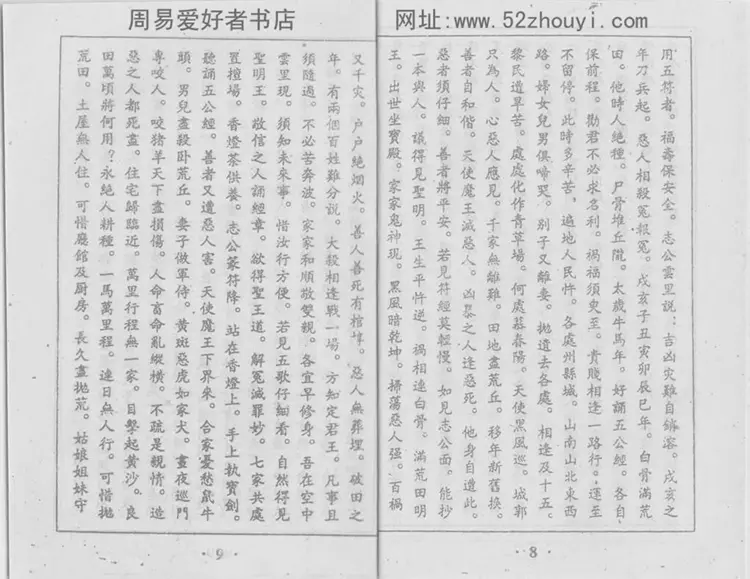 周易爱好者书店
网址:www.52zhouyi.com
用五符者。福壽保安全。志公雲里説：吉凶灾難自鎔溶。戌亥之
年刀兵起。惡人相殺冤報冤。戌亥子丑寅卯辰巳年。白骨滿荒
田。他時人絶種。尸骨堆丘隴。太歲牛馬年。好誦五公經。各自
保前程。勸君不必求名利。禍福須臾至。貴賤相逢一路行。運至
不留停。此時多辛苦，遍地人民忤。各處州縣城。山南山北東西
路。婦女兒男俱啼哭。别子又離妻。拋遺去各處。相逢及十五。
黎民遭早苦。處處化作青草場。何處慕春陽。天使黑風巡。城郭
只為人。心惡人應見。千家無離難。田地盡荒丘。移年新舊换。
善者自和偕。天使魔王滅惡人。凶暴之人逢惡死。他身自遭此。
惡者須仔細。善者將平安。若見符經莫輕慢。如見志公面。能抄
一本與人。議得見聖明。王生平忤逆。禍相連白骨。滿荒田明
王。出世坐寶殿。家家鬼神現。黑風暗乾坤。掃蕩惡人强。百禍
·8·
又千灾。户户絶烟火。善人善死有棺埻。惡人無葬埋。破田之
年。有兩個百姓難分説。大殺相逢戰一場。方知定君王。凡事且
須隨過。不必苦奔波。家家和順敬雙親。各宜早修身。吾在空中
雲里現。須知未來事。惜汝行方便。若見五歌仔細看。自然得見
聖明王。敬信之人誦經章。欲得聖王道。解冤滅罪妙。七家共處
置擅場。香燈茶供養。志公篆符降。站在香燈上。手上執寶劍。
聽誦五公經。善者又遭惡人害。天使魔王下界來。合家憂愁鼠牛
頭。男兒盡殺卧荒丘。妻子做軍侍。黄斑惡虎如家犬。晝夜巡門
專咬人。咬猪羊天下盡損傷。人命畜命亂縱橫。不疏是親情。造
惡之人都死盡。住宅歸臨近。萬里行程無一家。目擊起黄沙。良
田萬頃將何用？永絶人耕種。一馬萬里程。連日無人行。可惜拋
荒田。土屋無人住。可惜廳館及厨房。長久盡拋荒。姑娘姐妹守
·9·